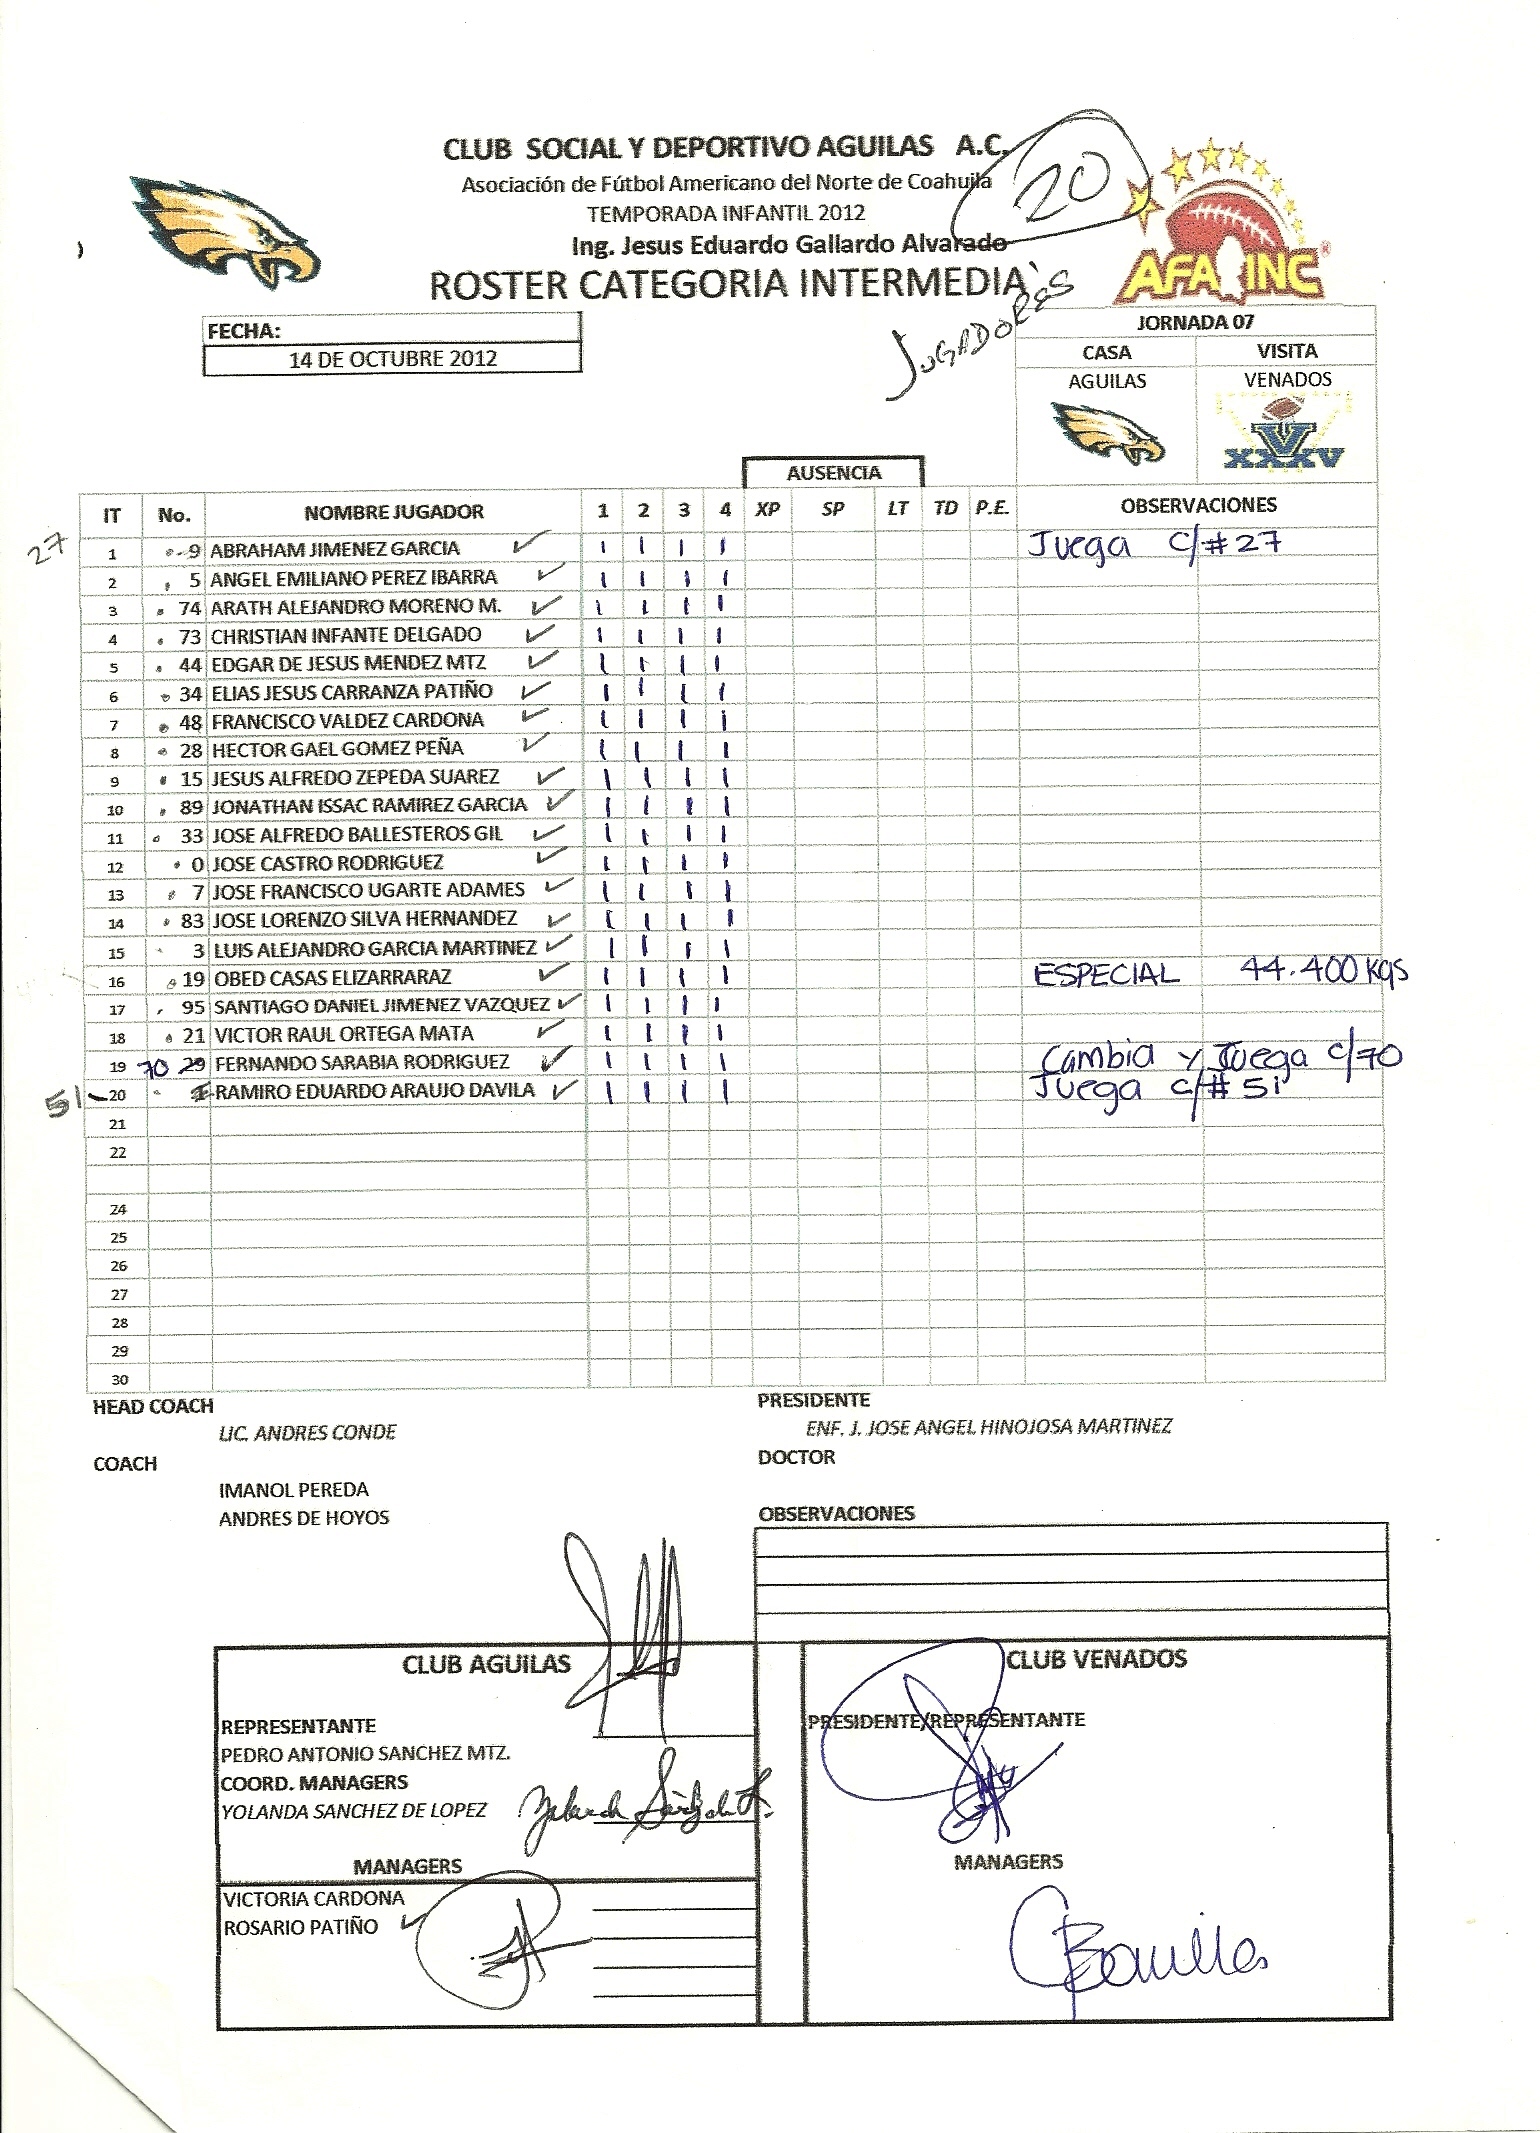 CLUB SOCIAL Y DEPORTIVO AGUILAS A.C.
20
Asociación de Fútbol Americano del Norte de Coahuila
TEMPORADA INFANTIL 2012
Ing. Jesus Eduardo Gallardo Alvarado
ROSTER CATEGORIA INTERMEDIA
AFAINC
JUGADORES
FECHA:
14 DE OCTUBRE 2012
JORNADA 07
CASA VISITA
AGUILAS VENADOS
V
XXXV
AUSENCIA
IT No. NOMBRE JUGADOR 1 2 3 4 XP SP LT TD P.E. OBSERVACIONES
27 1 9 ABRAHAM JIMENEZ GARCIA ✓ I I I I Juega c/#27
2 5 ANGEL EMILIANO PEREZ IBARRA ✓ I I I I
3 74 ARATH ALEJANDRO MORENO M. ✓ I I I I
4 73 CHRISTIAN INFANTE DELGADO ✓ I I I I
5 44 EDGAR DE JESUS MENDEZ MTZ ✓ I I I I
6 34 ELIAS JESUS CARRANZA PATIÑO ✓ I I I I
7 48 FRANCISCO VALDEZ CARDONA ✓ I I I I
8 28 HECTOR GAEL GOMEZ PEÑA ✓ I I I I
9 15 JESUS ALFREDO ZEPEDA SUAREZ ✓ I I I I
10 89 JONATHAN ISSAC RAMIREZ GARCIA ✓ I I I I
11 33 JOSE ALFREDO BALLESTEROS GIL ✓ I I I I
12 0 JOSE CASTRO RODRIGUEZ ✓ I I I I
13 7 JOSE FRANCISCO UGARTE ADAMES ✓ I I I I
14 83 JOSE LORENZO SILVA HERNANDEZ ✓ I I I I
15 3 LUIS ALEJANDRO GARCIA MARTINEZ ✓ I I I I
16 19 OBED CASAS ELIZARRARAZ ✓ I I I I ESPECIAL 44.400 Kgs
17 95 SANTIAGO DANIEL JIMENEZ VAZQUEZ ✓ I I I I
18 21 VICTOR RAUL ORTEGA MATA ✓ I I I I
19 70 29 FERNANDO SARABIA RODRIGUEZ ✓ I I I I Cambia y Juega c/70
51 20 RAMIRO EDUARDO ARAUJO DAVILA ✓ I I I I Juega c/# 51
21
22
24
25
26
27
28
29
30
HEAD COACH PRESIDENTE
LIC. ANDRES CONDE ENF. J. JOSE ANGEL HINOJOSA MARTINEZ
COACH DOCTOR
IMANOL PEREDA
ANDRES DE HOYOS OBSERVACIONES
CLUB AGUILAS CLUB VENADOS
REPRESENTANTE PRESIDENTE/REPRESENTANTE
PEDRO ANTONIO SANCHEZ MTZ.
COORD. MANAGERS
YOLANDA SANCHEZ DE LOPEZ
MANAGERS MANAGERS
VICTORIA CARDONA
ROSARIO PATIÑO ✓